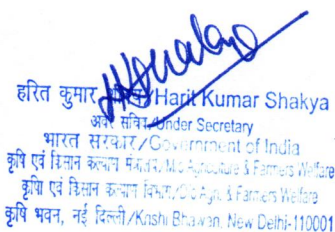 हरित कुमार /Harit Kumar Shakya
अवर सचिव/Under Secretary
भारत सरकार/Government of India
कृषि एवं किसान कल्याण मंत्रालय, M/o Agriculture & Farmers Welfare
कृषि एवं किसान कल्याण विभाग,/D/o Agri. & Farmers Welfare
कृषि भवन, नई दिल्ली/Krishi Bhawan, New Delhi-110001